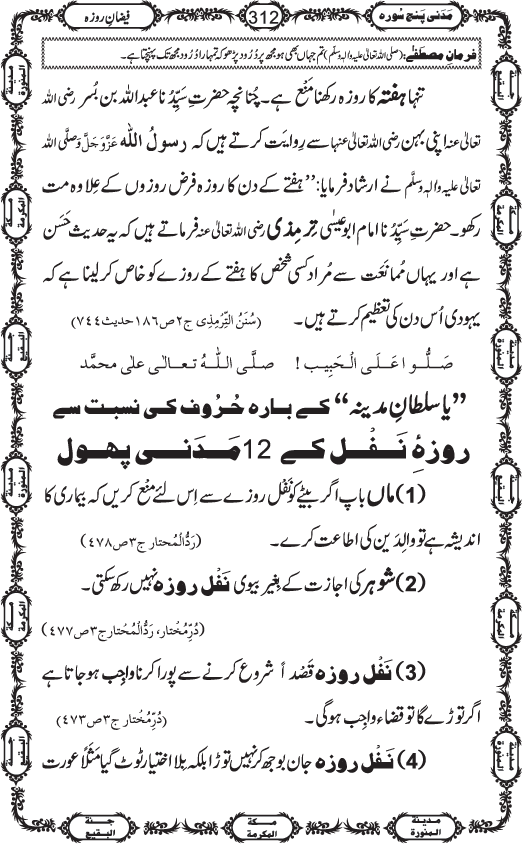 مَدَنی پنج سورہ
312
فیضانِ روزہ
فرمانِ مصطَفٰے: (صلی اللہ تعالیٰ علیہ واٰلہٖ وسلّم) تم جہاں بھی ہو مجھ پر دُرُود پڑھو کہ تمہارا دُرُود مجھ تک پہنچتا ہے۔
تنہا ہفتہ کا روزہ رکھنا مَنْع ہے۔ چُنانچِہ حضرتِ سیِّدُنا عبداللہ بن بُسر رضی اللہ
تعالیٰ عنہ اپنی بہن رضی اللہ تعالیٰ عنہا سے رِوایَت کرتے ہیں کہ رسولُ اللہ عَزَّوَجَلَّ وَصلَّی اللہ
تعالیٰ علیہ واٰلہٖ وسلَّم نے ارشاد فرمایا: ’’ہفتے کے دن کا روزہ فرض روزوں کے عِلاوہ مت
رکھو۔ حضرتِ سَیِّدُنا امام ابو عیسٰی تِرمِذی رضی اللہ تعالیٰ عنہ فرماتے ہیں کہ یہ حدیث حَسَن
ہے اور یہاں مُمانَعَت سے مُراد کسی شخص کا ہفتے کے روزے کو خاص کر لینا ہے کہ
یہودی اُس دن کی تعظیم کرتے ہیں۔ (سُنَنُ التِّرْمِذِی ج۲ ص۱۸۶ حدیث۷۴۴)
صَلُّوا عَلَی الْحَبِیب! صلَّی اللہُ تعالٰی علٰی محمَّد
’’یا سلطانِ مدینہ‘‘ کے بارہ حُرُوف کی نسبت سے
روزۂِ نَفْل کے 12 مَدَنی پھول
(1) ماں باپ اگر بیٹے کو نَفْل روزے سے اِس لئے مَنْع کریں کہ بیماری کا
اندیشہ ہے تو والِدَین کی اطاعت کرے۔ (رَدُّالْمُحتار ج۳ ص۴۷۸)
(2) شوہر کی اجازت کے بِغیر بیوی نَفْل روزہ نہیں رکھ سکتی۔
(دُرِّمُختار، رَدُّالْمُحتار ج۳ ص۴۷۷)
(3) نَفْل روزہ قَصْداً شروع کرنے سے پورا کرنا واجِب ہو جاتا ہے
اگر توڑے گا تو قضاء واجِب ہوگی۔ (دُرِّمُختار ج۳ ص۴۷۳)
(4) نَفْل روزہ جان بوجھ کر نہیں توڑا بلکہ بِلا اختیار ٹوٹ گیا مَثَلًا عورت
مدینۃ المنورۃ
مکۃ المکرمۃ
جنۃ البقیع
مدینۃ المنورۃ
مکۃ المکرمۃ
جنۃ البقیع
جنۃ البقیع
مکۃ المکرمۃ
مدینۃ المنورۃ
جنۃ البقیع
مکۃ المکرمۃ
مدینۃ المنورۃ
جنۃ البقیع
مکۃ المکرمۃ
مدینۃ المنورۃ